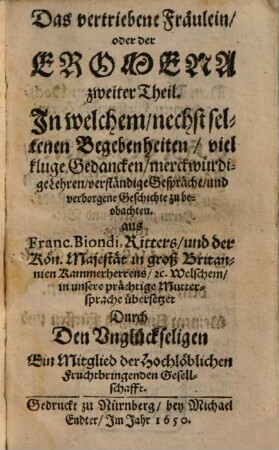 Das vertriebene Fräulein/
oder der
EROMENA
zweiter Theil.
In welchem/nechst sel-
tenen Begebenheiten/ viel
kluge Gedancken/merckwürdi-
ge Lehren/verständige Gespräche/und
verborgene Geschichte zu be-
obachten.
aus
Franc. Biondi, Ritters/und der
Kön. Majestät in groß Britan-
nien Kammerherrens/ ꝛc. Welschem/
in unsere prächtige Mutter-
sprache übersetzet
Durch
Den Unglückseligen
Ein Mitglied der Hochlöblichen
Fruchtbringenden Gesell-
schafft.
Gedruckt zu Nürnberg/ bey Michael
Endter/ Im Jahr 1650.